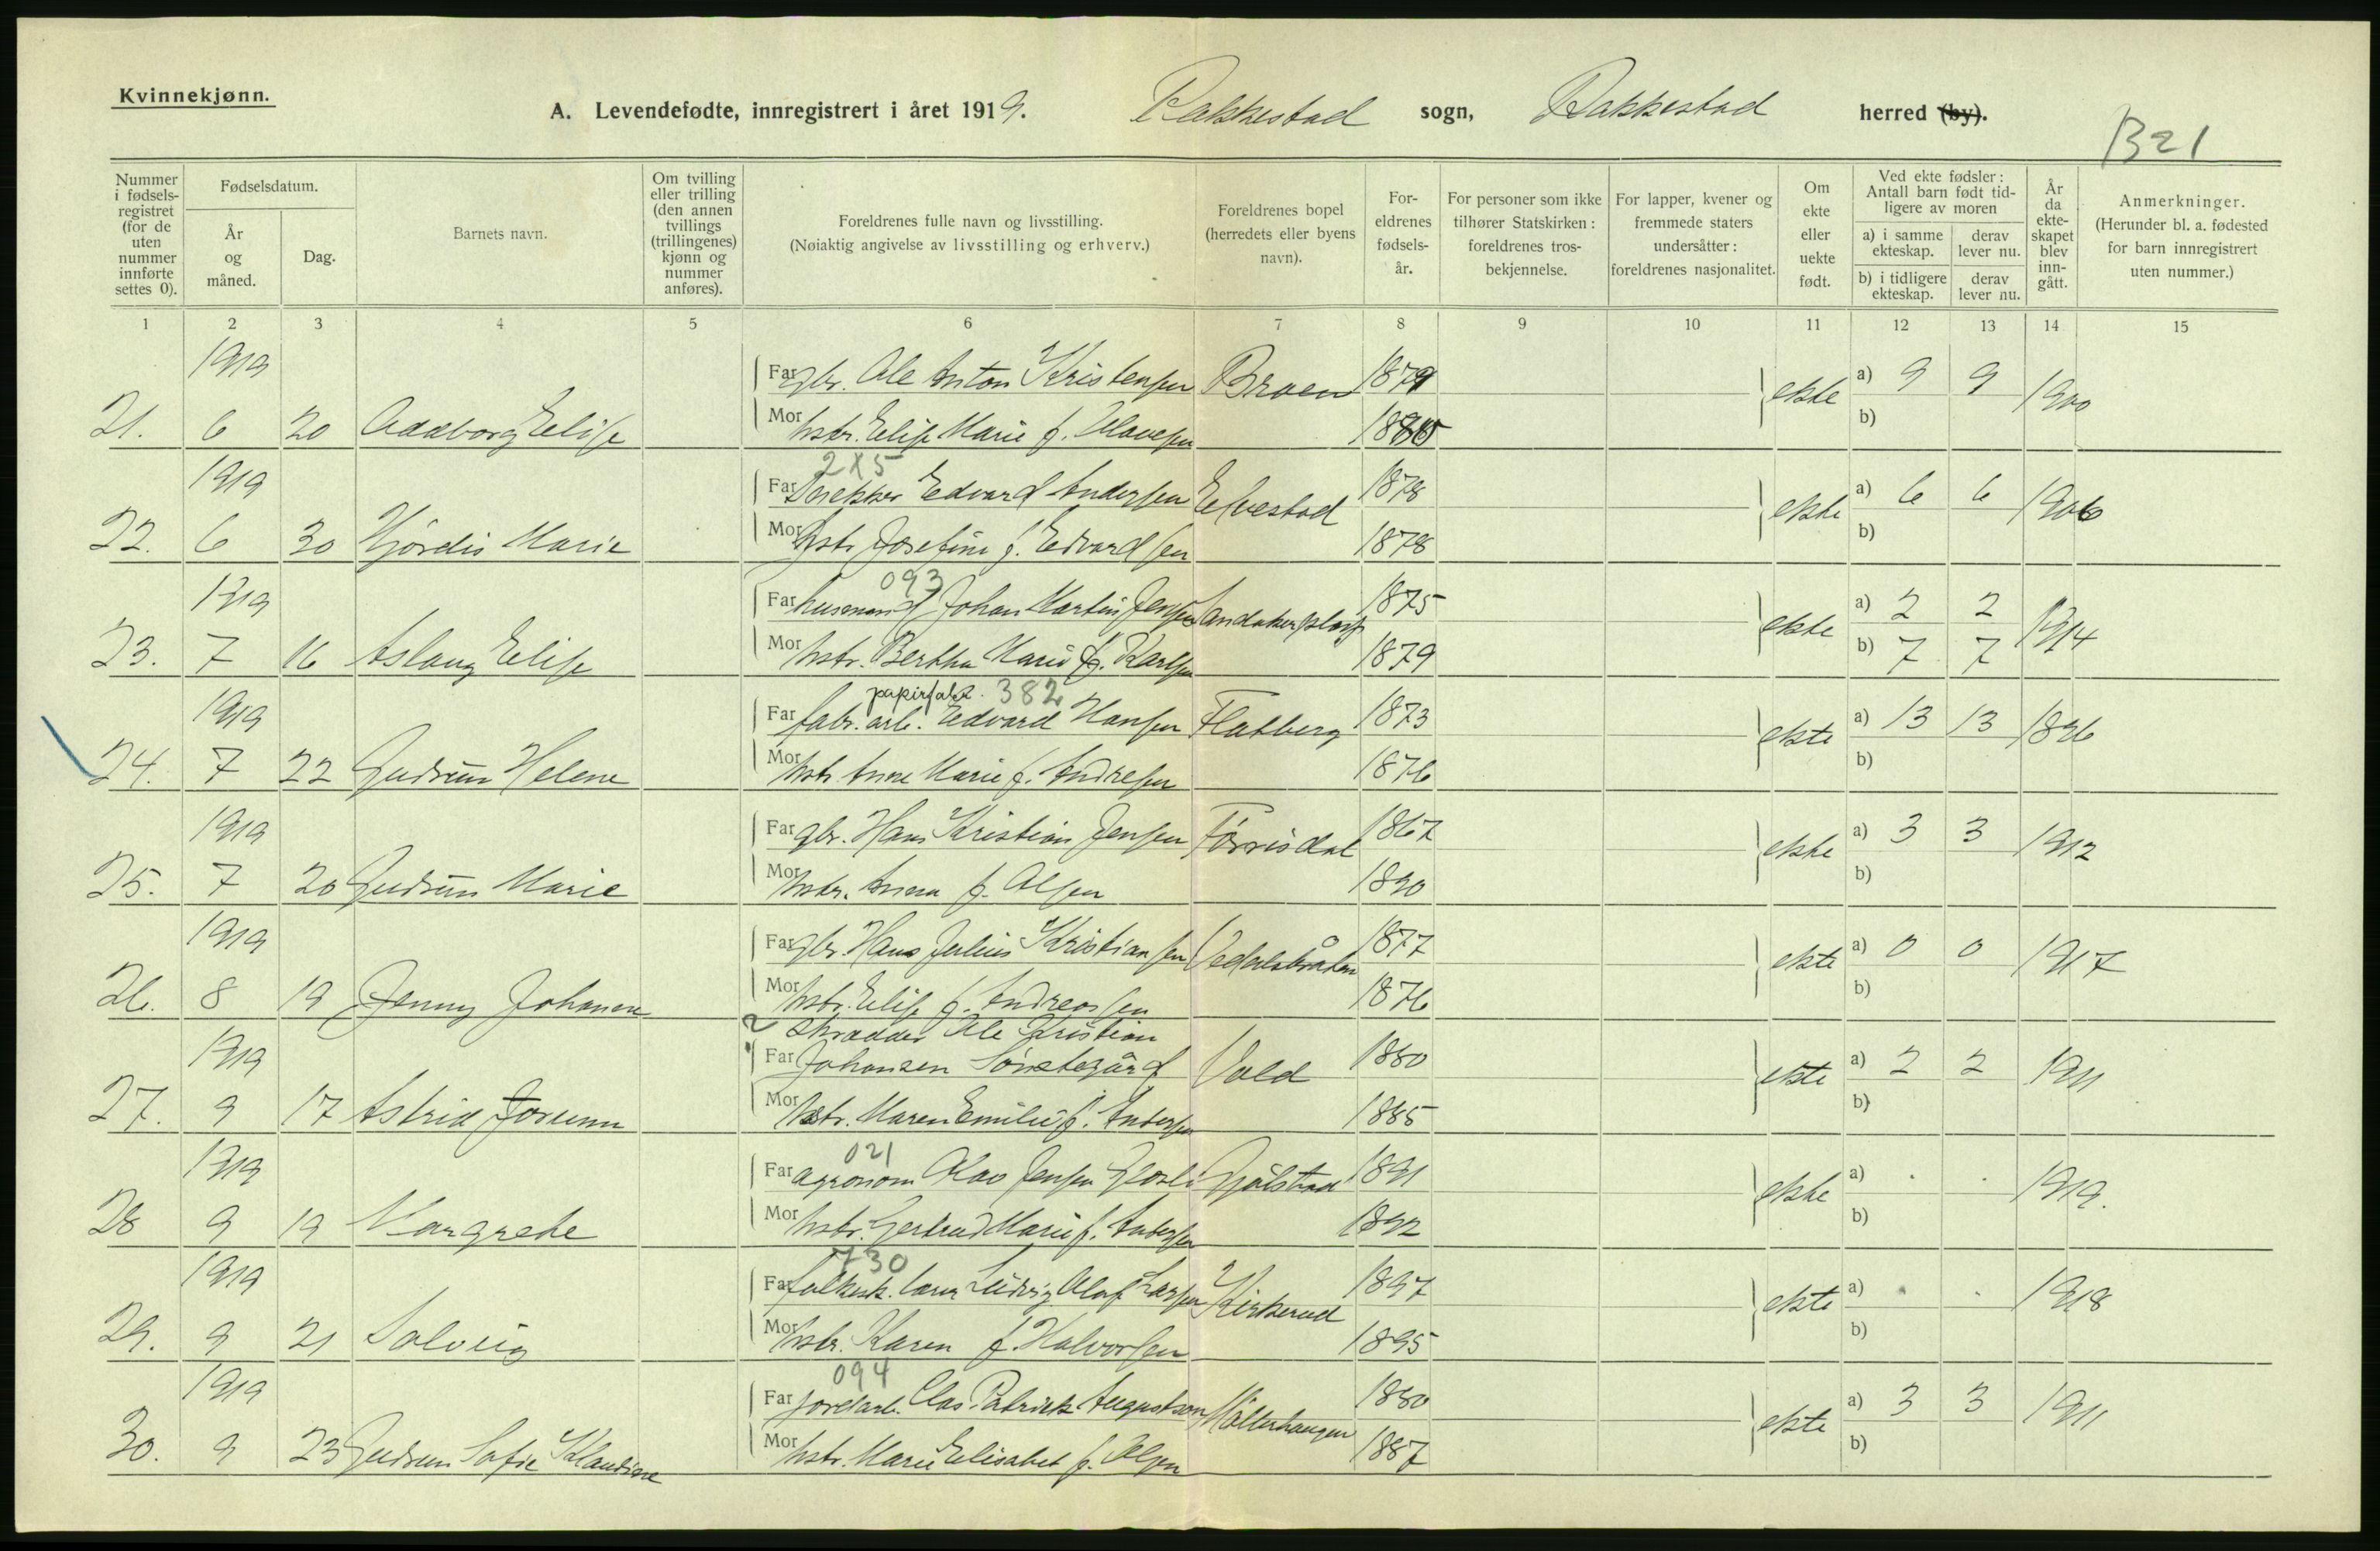 Kvinnekjønn.
A. Levendefødte, innregistrert i året 1919. Rakkestad sogn, Rakkestad herred (by).
1321
Nummer i fødselsregistret (for de uten nummer innførte settes 0).
Fødselsdatum.
År og måned.
Dag.
Barnets navn.
Om tvilling eller trilling (den annen tvillings (trillingenes) kjønn og nummer anføres).
Foreldrenes fulle navn og livsstilling.
(Nøiaktig angivelse av livsstilling og erhverv.)
Foreldrenes bopel (herredets eller byens navn).
Foreldrenes fødselsår.
For personer som ikke tilhører Statskirken: foreldrenes trosbekjennelse.
For lapper, kvener og fremmede staters undersåtter: foreldrenes nasjonalitet.
Om ekte eller uekte født.
Ved ekte fødsler: Antall barn født tidligere av moren
a) i samme ekteskap.
derav lever nu.
b) i tidligere ekteskap.
derav lever nu.
År da ekteskapet blev inngått.
Anmerkninger.
(Herunder bl. a. fødested for barn innregistrert uten nummer.)
1 2 3 4 5 6 7 8 9 10 11 12 13 14 15
1919 Far gbr. Ole Anton Kristensen Braen 1879 ekte a) 9 9 1900
21. 6 20 Aadborg Elise Mor hstr. Elise Marie f. Olavesen b)
2x5
1919 Far Snekker Edvard Andersen Elvestad 1878 ekte a) 6 6 1906
22. 6 30 Hjørdis Marie Mor hstr Josefine f. Edvardsen 1878 b)
093
1919 Far husmand Johan Martin Jensen Sandakerplass 1875 ekte a) 2 2 1914
23. 7 16 Aslaug Elise Mor hstr. Bertha Marie f. Karlsen 1879 b) 7 7
papirfabr. 382
1919 Far fabr. arb. Edvard Hansen Flatberg 1873 ekte a) 13 13 1896
24. 7 22 Gudrun Helene Mor hstr Anne Marie f. Andresen 1876 b)
1919 Far gbr. Hans Kristian Jensen Tørrisdal 1867 ekte a) 3 3 1912
25. 7 20 Gudrun Marie Mor hstr. Anna f. Olsen 1890 b)
1919 Far gbr. Hans Julius Kristiansen Vedulsbråten 1877 ekte a) 0 0 1917
26. 8 19 Jenny Johanne Mor hstr. Elise f. Andreassen 1876 b)
? Skrædder Ole Kristian
1919 Far Johansen Sønstegård Vold 1880 ekte a) 2 2 1911
27. 9 17 Astrid Jorunn Mor hstr. Maren Emilie f. Andersen 1885 b)
021
1919 Far agronom Olav Jensen Gjølstad 1891 ekte a) 1919.
28 9 19 Margrete Mor hstr. Gertrud Marie f. Andersen 1892 b)
730
1919 Far folkesk. lærer Ludvig Olaf Larsen Kirkerud 1897 ekte a) 1918
29. 9 21 Solveig Mor hstr. Karen f. Halvorsen 1895 b)
094
1919 Far jordarb. Clas Patrick Augustson Møllerhaugen 1880 ekte a) 3 3 1911
30. 9 23 Gudrun Sofie Klaudine Mor hstr. Marie Elisabet f. Olsen 1887 b)